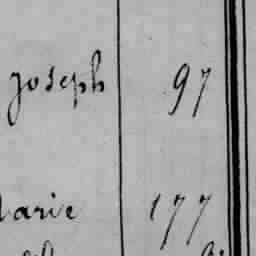 Joseph 97
Marie 177